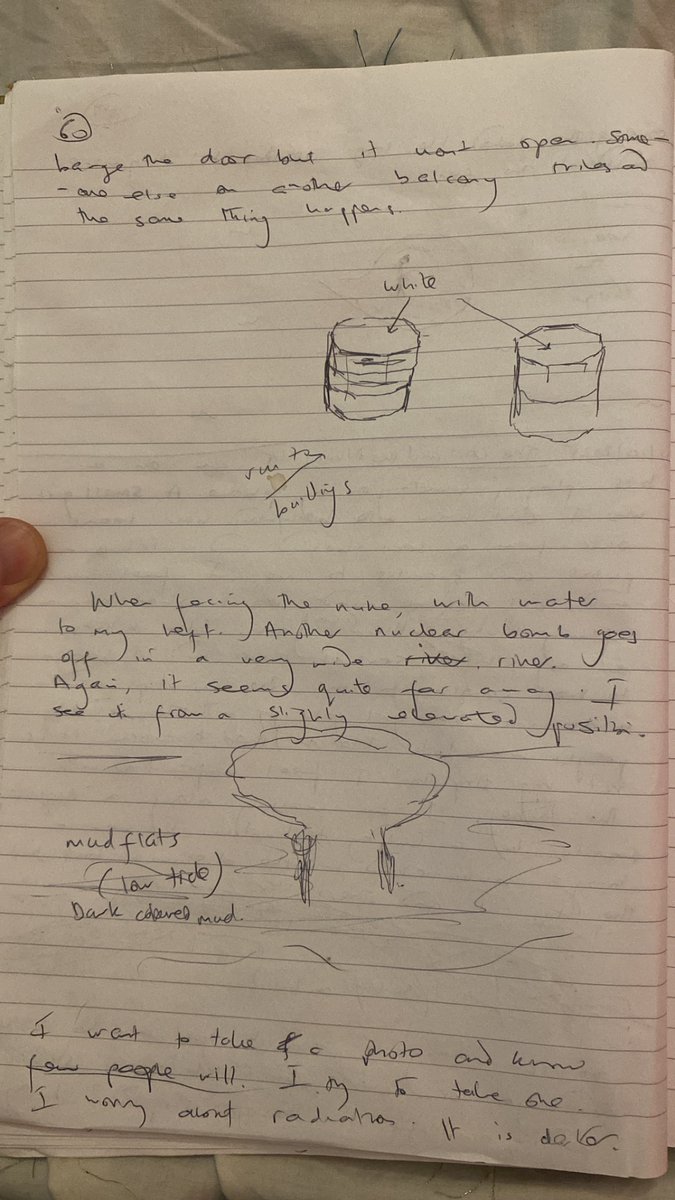 60
barge the door but it wont open. Some-
-one else on another balcony tries and
the same thing happens.
white
run to
buildings
When facing the nuke, with water
to my left. Another nuclear bomb goes
off in a very wide river. river.
Again, it seems quite far away. I
see it from a slighly elevated position.
mudflats
(low tide)
Dark coloured mud.
I want to take a photo and know
few people will. I try to take one.
I worry about radiation. It is